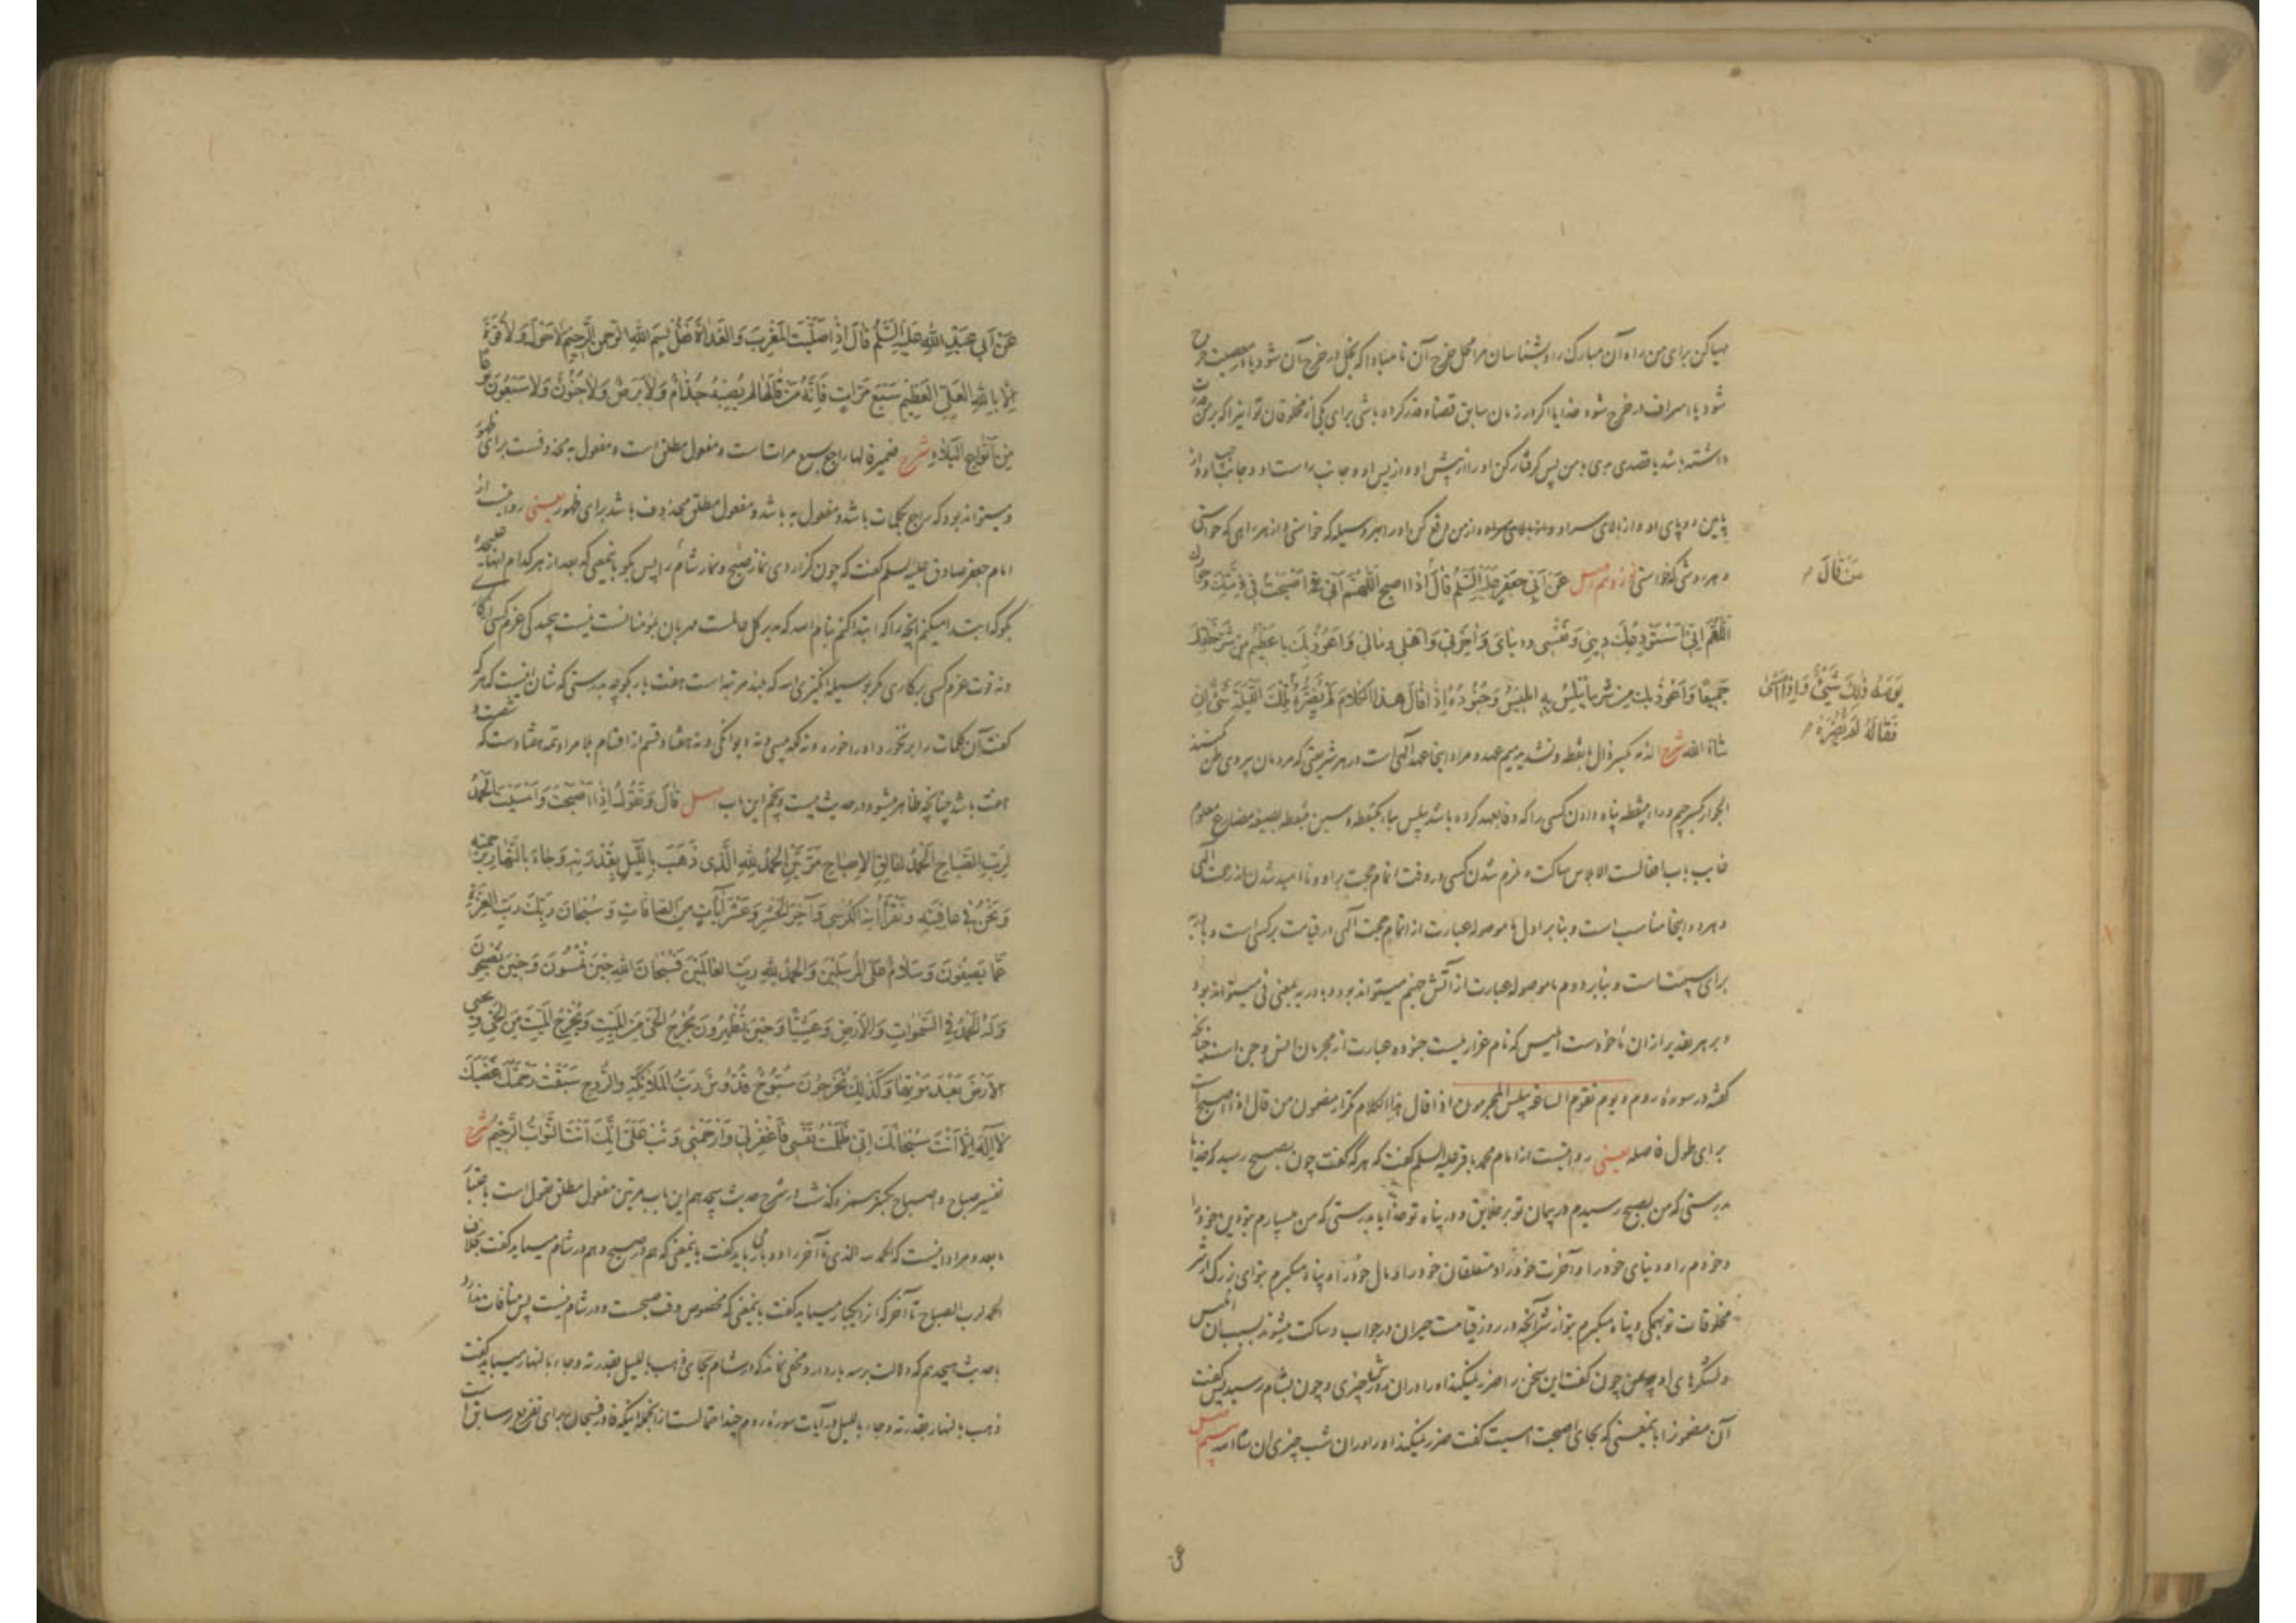 مهیا کن برای من راه آن مبارک را و بشناسان مرا محل خرج آن تا مبادا که بخل در خرج آن شود یا در معصیت خرج
شود یا اسراف در خرج شود خدایا اگر در زمان سابق قضا و قدر کرده باشی برای یکی از مخلوقان تو اینرا که بر من قدرت
داشته باشد یا قصدی بدی با من پس گرفتار کن او را از پیش او و از پس او و جانب راست او و جانب چپ او و از
پایین دو پای او و از بالای سر او و از من دفع کن او را بهر وسیله که خواستی و از هر راهی که خواستی
و هر روشی که خواستی نوزدهم اصل عَنْ اَبی جَعْفَرٍ عَلَیْهِ السَّلامُ قالَ اِذا اصبح اَللّهُمَّ اِنّی اَصْبَحْتُ فی ذِمَّتِکَ وَجِوارِکَ
مَنْ قالَ
اَللّهُمَّ اِنّی اَسْتَوْدِعُکَ دینی وَ نَفْسی وَ دنیای وَ آخِرَتی وَ اَهْلی وَ مالی وَ اَعوُذُ بِکَ یا عَظیمُ مِنْ شَرِّ خَلْقِکَ
جَمیعًا وَ اَعُوذُ بِکَ مِنْ شَرِّ ما یُبْلِسُ بِهِ اِبْلیسُ وَ جُنُودُهُ اِذا قالَ هذَا الْکَلامَ لَمْ یَضُرَّهُ تِلْکَ اللَّیْلَةَ شَیْءٌ اِنْ
یَوْمَهُ ذلِکَ شَیْءٌ وَ اِذا اَمْسی
فَقالَهُ لَمْ یَضُرَّهُ
شاءَ اللّه شرح الذمه بکسر ذال بانقطه و تشدید میم عهد و مراد اینجا عهد الهی است در هر شریعتی که مردمان پیروی ظن نکنند
الجوار بکسر جیم و راء بینقطه پناه دادن کسی را که وفا بعهد کرده باشد یبلس بباء یکنقطه و سین بینقطه بصیغه مضارع معلوم
غایب باب افعالست الابلاس ساکت و ملزم شدن کسی در وقت اتمام حجت بر او و ناامید شدن از رحمت الهی
و هر دو اینجا مناسب است و بنابر اول ما موصوله عبارت از اتمام حجت الهی در قیامت بر کسی است و باء به
برای سببیت است و بنابر دوم ما موصوله عبارت از آتش جهنم میتواند بود و باء در به بمعنی فی میتواند بود
و بر هر تقدیر از آن ماخوذ است ابلیس که نام عزازیلست جنوده عبارت از مجرمان انس و جن است چنانکه
گفته در سورۀ روم و یوم تقوم الساعة یبلس المجرمون اذا قال هذا الکلام تکرار مضمون من قال اذا اصبح است
برای طول فاصله یعنی روایتست از امام محمد باقر علیه السلم گفت که هر که گفت چون بصبح رسید که خدایا
بدرستی که من بصبح رسیدم در پیمان تو بر خلایق و در پناه تو خدایا بدرستی که من میسپارم بتو دین خود را
و خودم را و دنیای خود را و آخرت خود را و متعلقان خود را و مال خود را و پناه میگیرم بتو ای بزرگ از شر
مخلوقات تو بهمگی و پناه میگیرم بتو از شر آنچه در روز قیامت حیران در جواب و ساکت میشوند بسبب آن ابلیس
و لشگرهای او چون گفت این سخن را ضرر نمیکند او را در آن روزش چیزی و چون بشام رسید پس گفت
آن مضمونرا بایمعنی که بجای اصبحت امسیت گفت ضرر نمیکند او را در آن شب چیزی ان شاء الله بیستم اصل
عَنْ اَبی عَبْدِ اللّهِ عَلَیْهِ السَّلَمُ قالَ اِذا صَلَّیْتَ الْمَغْرِبَ وَ الْغَداةَ فَقُلْ بِسْمِ اللّهِ الرَّحْمنِ الرَّحیمِ لا حَوْلَ وَ لا قُوَّةَ
اِلّا بِاللّهِ الْعَلِیِّ الْعَظیمِ سَبْعَ مَرّاتٍ فَاِنَّهُ مَنْ قالَها لَمْ یُصِبْهُ جُذامٌ وَ لا بَرَصٌ وَ لا جُنُونٌ وَ لا سَبْعُونَ نوعا
مِنْ اَنْواعِ الْبَلاءِ شرح ضمیر قالها راجع بسبع مرات است و مفعول مطلق است و مفعول به محذوفست برای ظهور
و میتواند بود که راجع بکلمات باشد و مفعول به باشد و مفعول مطلق محذوف باشد برای ظهور یعنی روایتست از
امام جعفر صادق علیه السلم گفت که چون گزاردی نماز صبح و نماز شام را پس بگو بایمعنی که بعد از هر کدام اینها
بگو که ابتدا میکنم آنچه را که ابتدا کنم بنام الله که مدبر کل عالمست مهربان بمؤمنانست نیست بجدکی عزم کسی
و نه قوت عزم کسی بر کاری مگر بوسیله انگیزی الله که بلند مرتبه است هفت بار بگو چه بدرستی که شان اینست که هر که
گفت آن کلمات را برنخورد او را خوره و نه پیسی و نه دیوانگی و نه هفتاد قسم از اقسام بلا مراد تتمه هفتاد است که
باشد چنانچه ظاهر میشود در حدیث بیست و پنجم این باب اصل قالَ وَ تَقُولُ اِذا اَصْبَحْتَ وَ اَمْسَیْتَ اَلْحَمْدُ
لِرَبِّ الصَّباحِ اَلْحَمْدُ لِفالِقِ الاِصْباحِ مَرَّتَیْنِ اَلْحَمْدُ لِلّهِ الَّذی ذَهَبَ بِاللَّیْلِ بِقُدْرَتِهِ وَ جاءَ بِالنَّهارِ بِرَحْمَتِهِ
وَ نَحْنُ فی عافِیَتِهِ وَ تَقْرَأُ آیَةَ الْکُرْسِیِّ وَ آخِرَ الْحَشْرِ وَ عَشْرَ آیاتٍ مِنَ الصّافّاتِ وَ سُبْحانَ رَبِّکَ رَبِّ الْعِزَّةِ
عَمّا یَصِفُونَ وَ سَلامٌ عَلَی الْمُرْسَلینَ وَ الْحَمْدُ لِلّهِ رَبِّ الْعالَمینَ فَسُبْحانَ اللّهِ حینَ تُمْسُونَ وَ حینَ تُصْبِحُونَ
وَ لَهُ الْحَمْدُ فِی السَّمواتِ وَ الاَرْضِ وَ عَشِیًّا وَ حینَ تُظْهِرُونَ یُخْرِجُ الْحَیَّ مِنَ الْمَیِّتِ وَ یُخْرِجُ الْمَیِّتَ مِنَ الْحَیِّ وَ یُحیی
الاَرْضَ بَعْدَ مَوْتِها وَ کَذلِکَ تُخْرَجُونَ سُبُّوحٌ قُدُّوسٌ رَبُّ الْمَلائِکَةِ وَ الرُّوحِ سَبَقَتْ رَحْمَتُکَ غَضَبَکَ
لا اِلهَ اِلّا اَنْتَ سُبْحانَکَ اِنّی ظَلَمْتُ نَفْسی فَاغْفِرْ لی وَ ارْحَمْنی وَ تُبْ عَلَیَّ اِنَّکَ اَنْتَ التَّوّابُ الرَّحیمُ شرح
تفسیر صباح و اصباح بکسر همزه گذشت در شرح حدیث هیجدهم این باب مرتین مفعول مطلق تقول است باعتبار
ما بعد و مراد اینست که الحمد لله الذی تا آخر را دو بار باید گفت بایمعنی که هم در صبح و هم در شام میباید گفت بخلاف
الحمد لرب الصباح تا آخر که از یکبار میباید گفت بایمعنی که مخصوص وقت صبحست و در شام نیست پس منافات ندارد
با حدیث هیجدهم که دلالت بر سه بار دارد و مخفی نماند که در شام بجای ذهب باللیل بقدرته و جاء بالنهار میباید گفت
ذهب بالنهار بقدرته و جاء باللیل و در آیات سورۀ روم چند احتمالست از آنجمله اینکه فاء در فسبحان برای تفریع بر سابق است